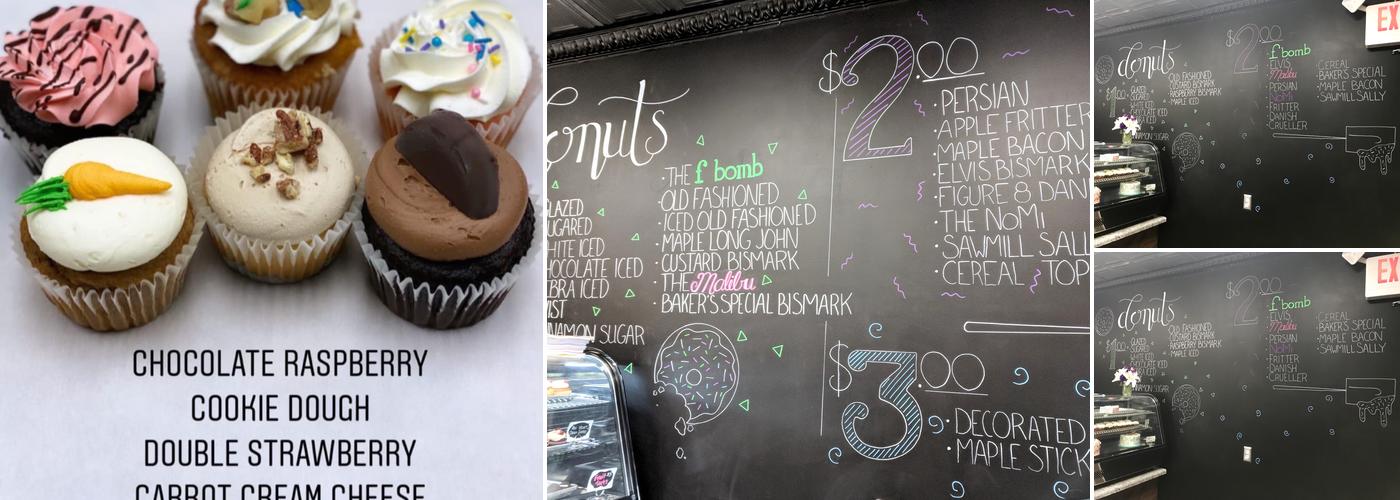 CHOCOLATE RASPBERRY
COOKIE DOUGH
DOUBLE STRAWBERRY
CARROT CREAM CHEESE
onuts
LAZED
UGARED
HITE ICED
HOCOLATE ICED
EBRA ICED
IST
NNAMON SUGAR
·THE f bomb
·OLD FASHIONED
·ICED OLD FASHIONED
·MAPLE LONG JOHN
·CUSTARD BISMARK
·THE Malibu
·BAKER'S SPECIAL BISMARK
$2.00
·PERSIAN
·APPLE FRITTER
·MAPLE BACON
·ELVIS BISMARK
·FIGURE 8 DANI
·THE NoMi
·SAWMILL SALL
·CEREAL TOP
$3.00
·DECORATED
·MAPLE STICK
donuts
GLAZED
SUGARED
WHITE ICED
CHOCOLATE ICED
NNAMON SUGAR
OLD FASHIONED
CUSTARD BISMARK
RASPBERRY BISMARK
MAPLE ICED
$2.00
f bomb
ELVIS
Malibu
PERSIAN
NoMi
FRITTER
DANISH
CRUELLER
·CEREAL
·BAKER'S SPECIAL
·MAPLE BACON
·SAWMILL SALLY
EX
donuts
OLD FASHIONED
CUSTARD BISMARK
RASPBERRY BISMARK
MAPLE ICED
WHITE ICED
CHOCOLATE ICED
NNAMON SUGAR
$2.00
f bomb
ELVIS
Malibu
PERSIAN
NoMi
FRITTER
DANISH
CRUELLER
·CEREAL
·BAKER'S SPECIAL
·MAPLE BACON
·SAWMILL SALLY
EX